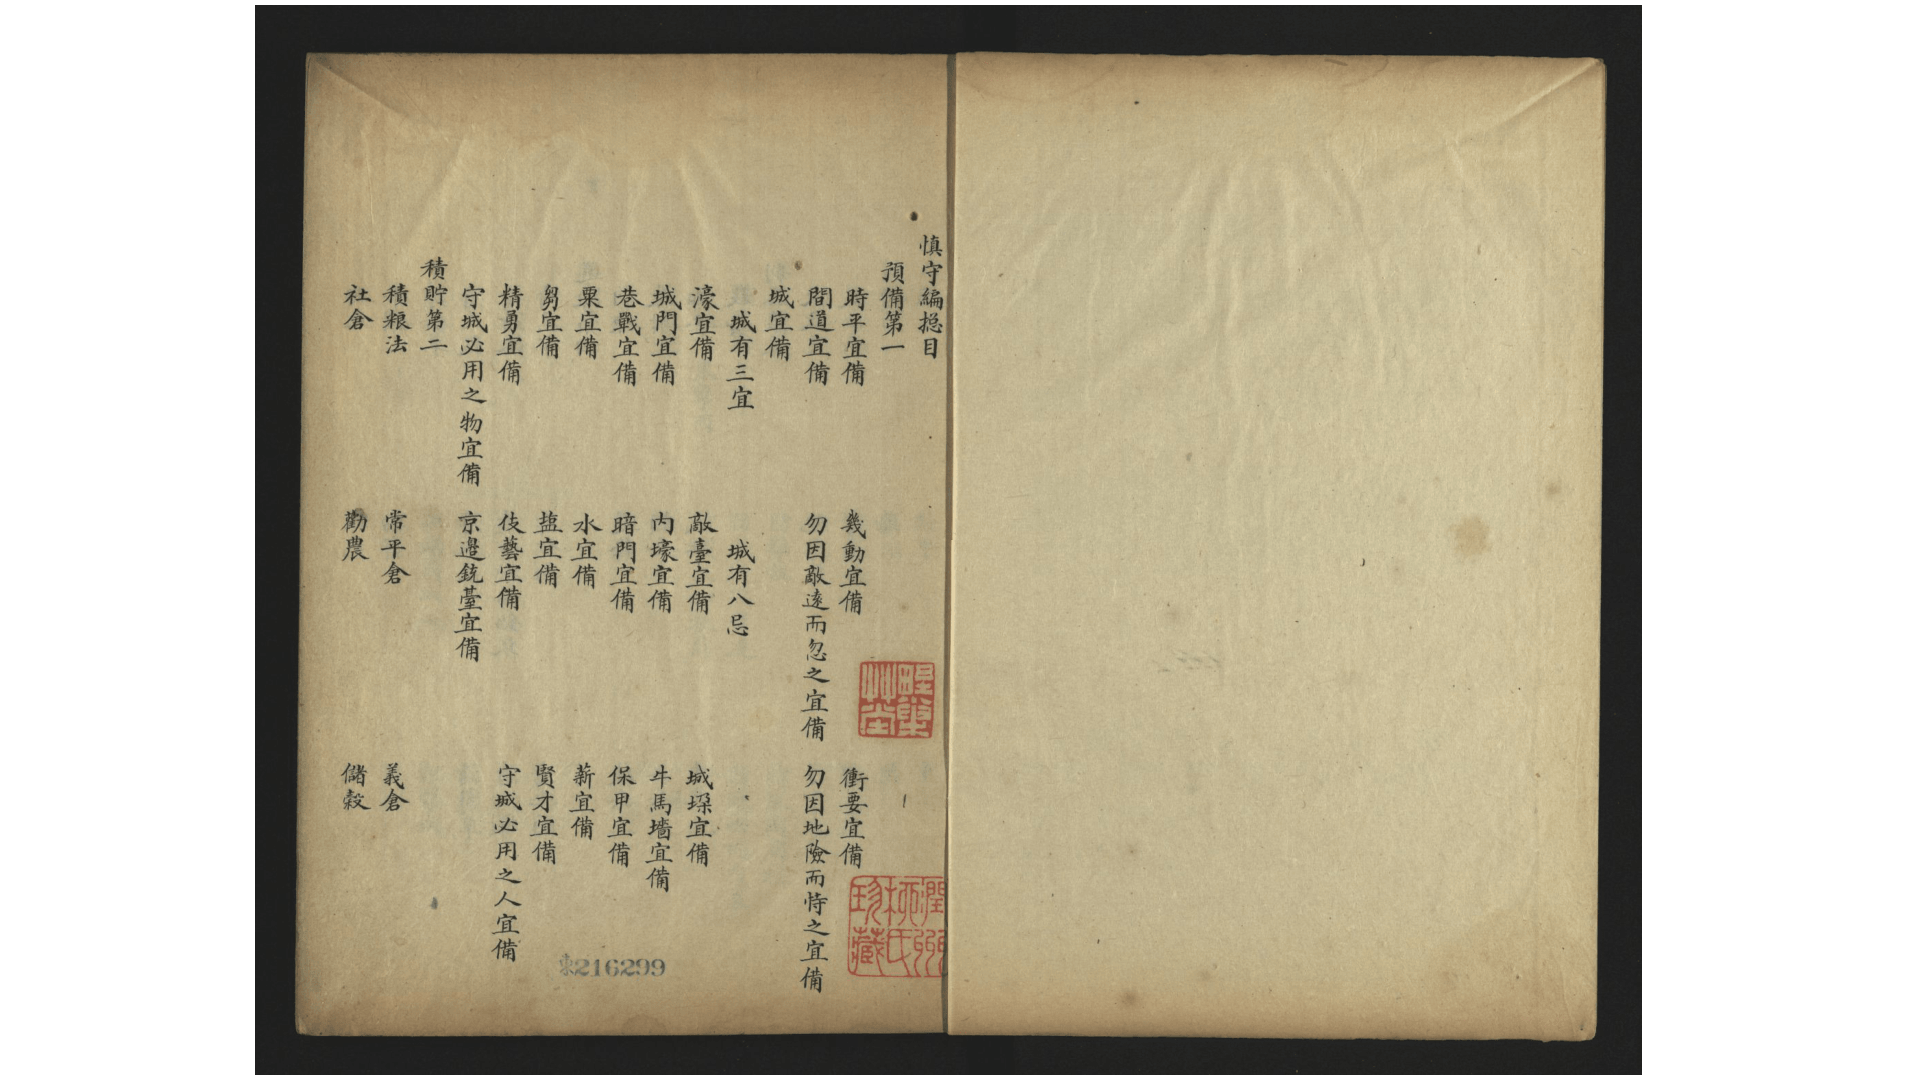 慎守編捴目
預備第一
時平宜備　幾動宜備　衝要宜備
間道宜備　勿因敵遠而忽之宜備　勿因地險而恃之宜備
城宜備
城有三宜　城有八忌
濠宜備　敵臺宜備　城垜宜備
城門宜備　内壕宜備　牛馬墻宜備
巷戰宜備　暗門宜備　保甲宜備
粟宜備　水宜備　薪宜備
芻宜備　盐宜備　賢才宜備
精勇宜備　伎藝宜備　守城必用之人宜備
守城必用之物宜備　京邉銃臺宜備
積貯第二
積粮法　常平倉　義倉
社倉　勸農　儲穀
艸堂
珍藏
東216299